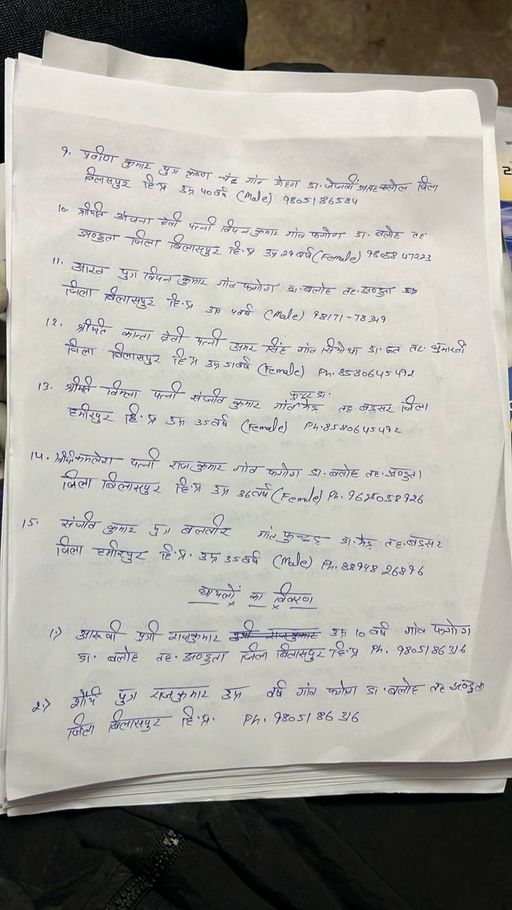 9. प्रवीण कुमार पुत्र कृष्ण चंद गांव डा. जिला
बिलासपुर हि.प्र उम्र 40 वर्ष (Male) 9805186584
10. श्रीमति अंजना देवी पत्नी विपन कुमार गांव फगोग डा. बलोह तह.
झण्डुता जिला बिलासपुर हि.प्र उम्र 29 वर्ष (Female)
11. आरव पुत्र विपन कुमार गांव फगोग डा. बलोह तह. झण्डुता
जिला बिलासपुर हि.प्र उम्र 4 वर्ष (Male)
12. श्रीमति कान्ता देवी पत्नी अमर सिंह गांव डा. तह. घुमारवीं
जिला बिलासपुर हि.प्र उम्र 51 वर्ष (Female) Ph. 8580645492
13. श्रीमति विमला पत्नी संजीव कुमार गांव तह बड़सर जिला
हमीरपुर हि.प्र उम्र 35 वर्ष (Female) Ph. 8580645492
14. श्रीमति कमलेश पत्नी राजकुमार गांव फगोग डा. बलोह तह. झण्डुता
जिला बिलासपुर हि.प्र उम्र 36 वर्ष (Female) Ph. 9625058926
15. संजीव कुमार पुत्र बलवीर गांव डा. मैड़ तह. बड़सर
जिला हमीरपुर हि.प्र. उम्र 35 वर्ष (Male) Ph. 88948 26896
घायलों का विवरण
1) आरुषी पुत्री राजकुमार उम्र 10 वर्ष गांव फगोग
डा. बलोह तह. झण्डुता जिला बिलासपुर हि.प्र Ph. 9805186316
2) शौर्य पुत्र राजकुमार उम्र वर्ष गांव फगोग डा. बलोह तह झण्डुता
जिला बिलासपुर हि.प्र. Ph. 9805186316